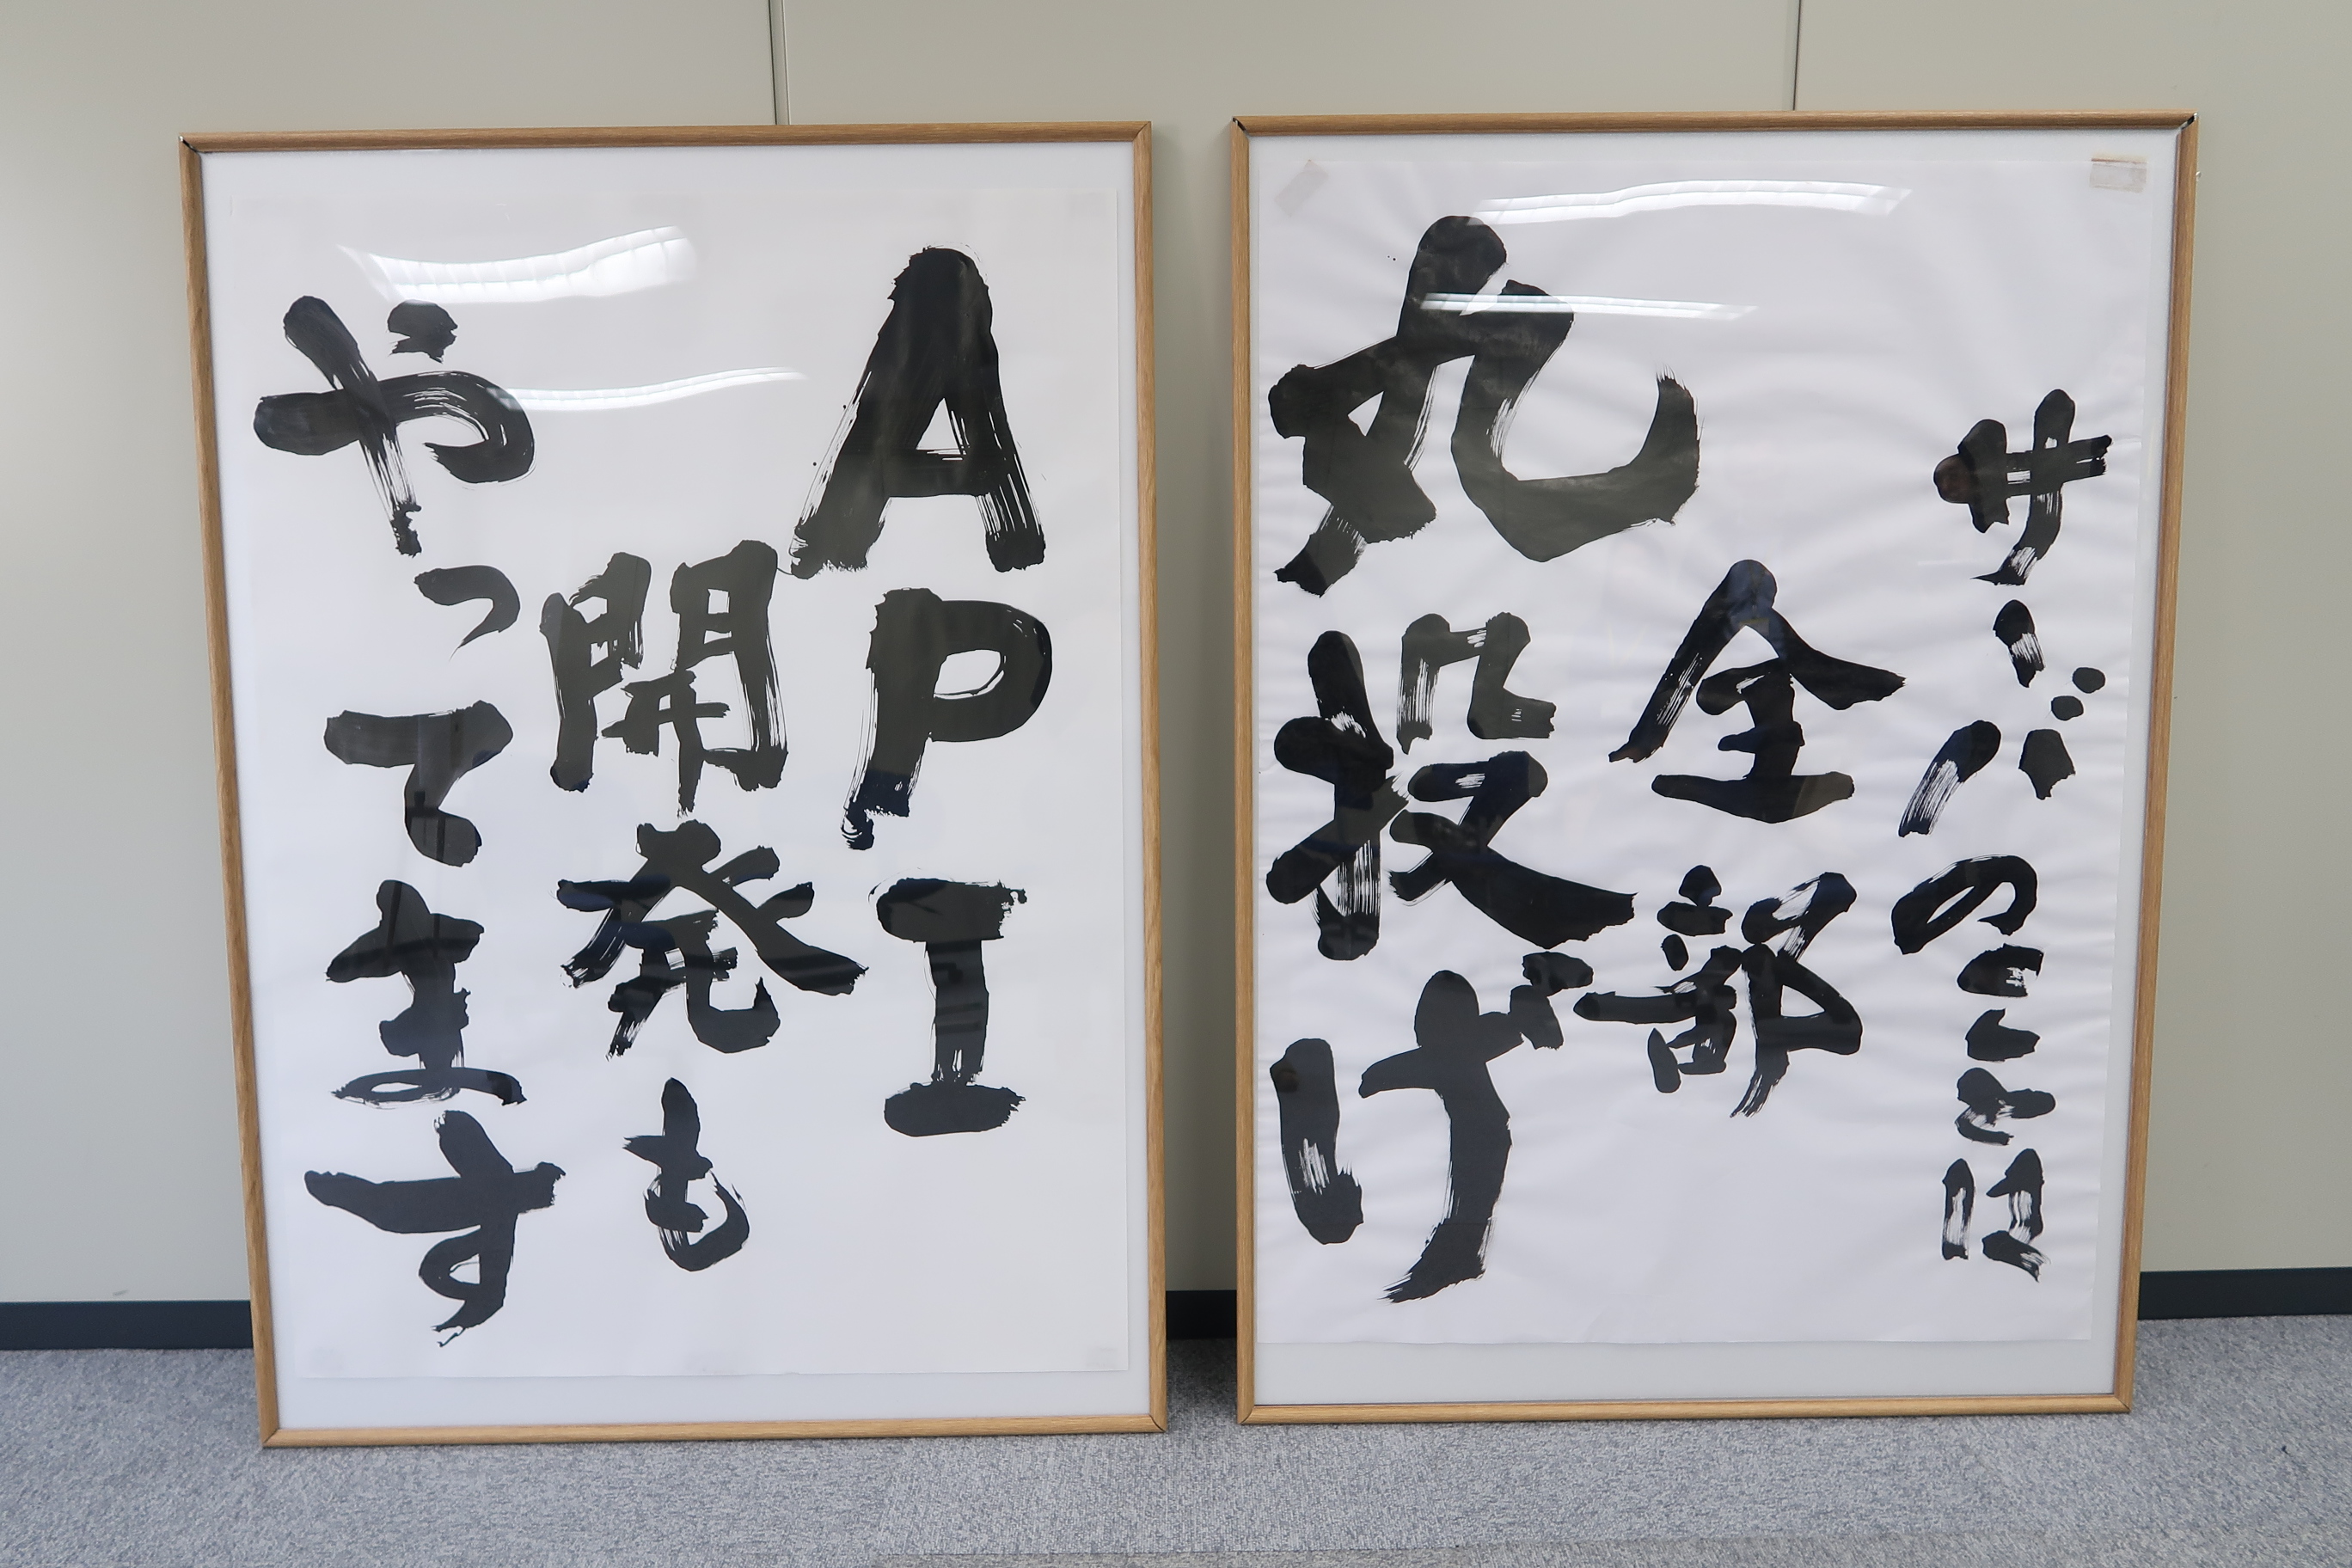 サーバのことは
全部
丸投げ
API
開発も
やってます